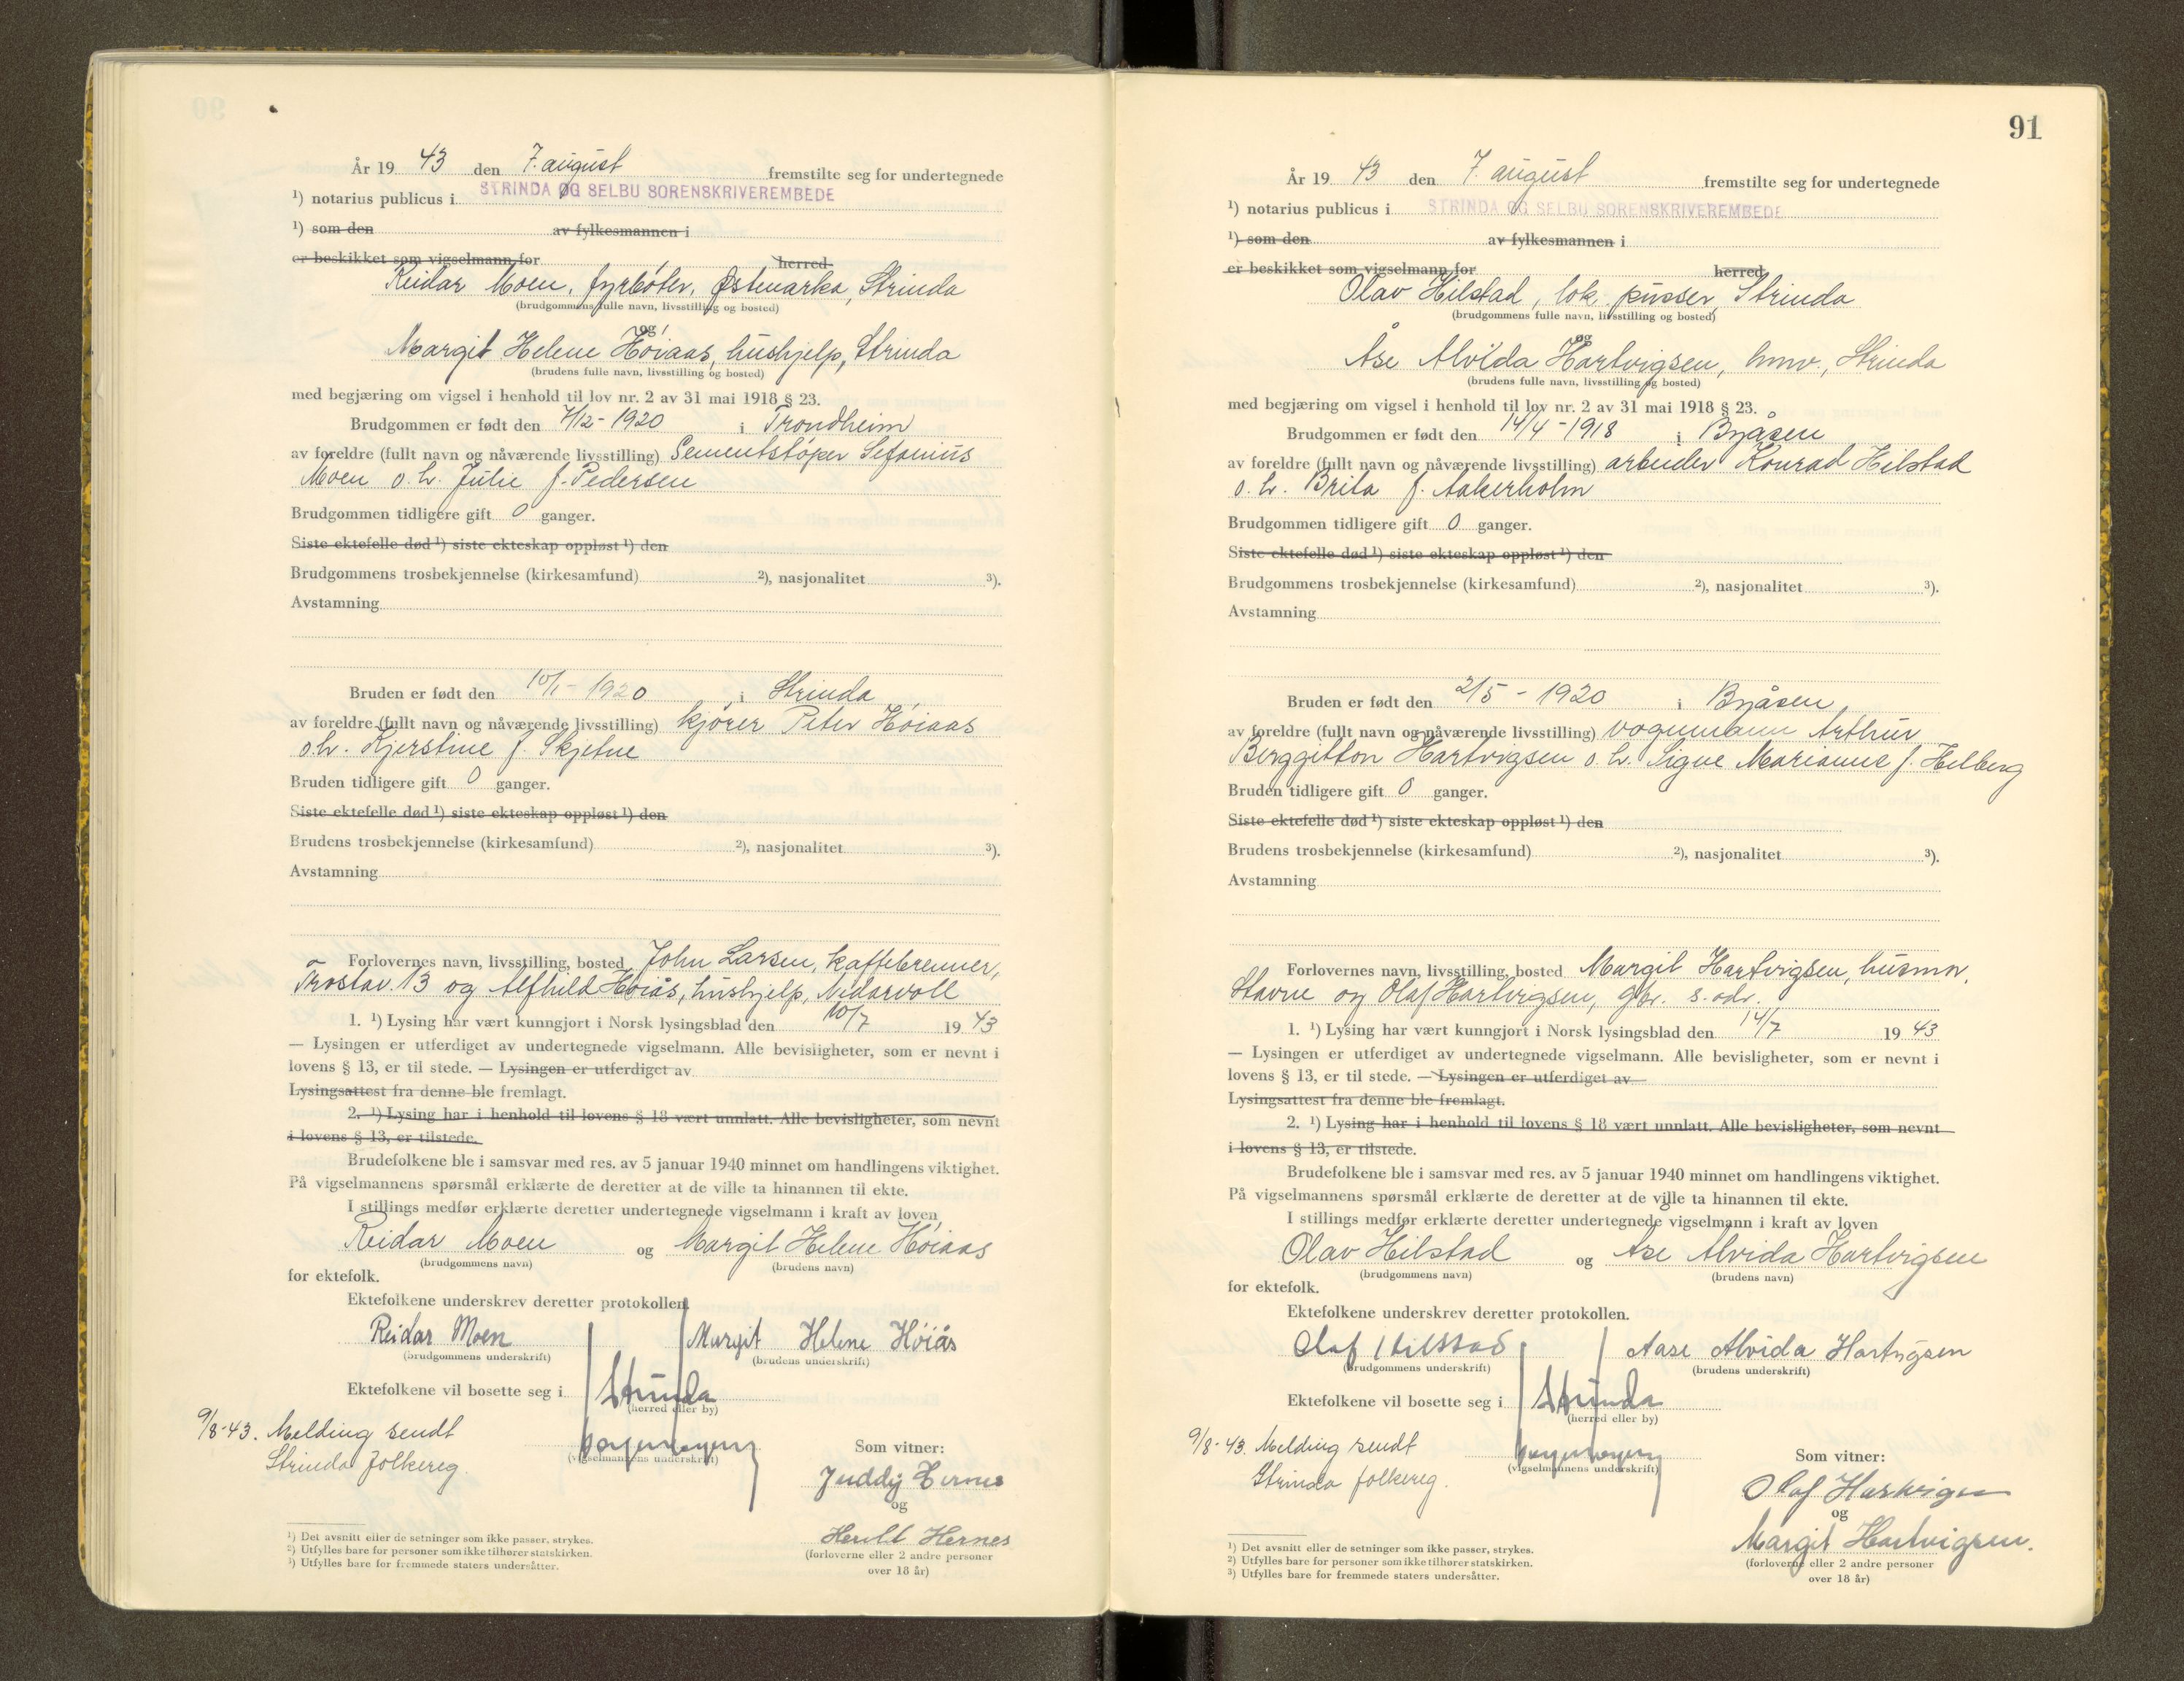 År 19 43 den 7. august fremstilte seg for undertegnede
¹) notarius publicus i STRINDA OG SELBU SORENSKRIVEREMBEDE
¹) som den av fylkesmannen i
er beskikket som vigselmann for herred
Reidar Moen, fyrbøter, Østmarka, Strinda
(brudgommens fulle navn, livsstilling og bosted)
og
Margit Helene Høiaas, hushjelp, Strinda
(brudens fulle navn, livsstilling og bosted)
med begjæring om vigsel i henhold til lov nr. 2 av 31 mai 1918 § 23.
Brudgommen er født den 7/12-1920 i Trondheim
av foreldre (fullt navn og nåværende livsstilling) Sementstøper Sefanius
Moen o.h. Julie f. Pedersen
Brudgommen tidligere gift 0 ganger.
Siste ektefelle død ¹) siste ekteskap oppløst ¹) den
Brudgommens trosbekjennelse (kirkesamfund) ²), nasjonalitet ³).
Avstamning
Bruden er født den 10/1-1920 i Strinda
av foreldre (fullt navn og nåværende livsstilling) kjører Peter Høiaas
o.h. Kjerstine f. Skjetne
Bruden tidligere gift 0 ganger.
Siste ektefelle død ¹) siste ekteskap oppløst ¹) den
Brudens trosbekjennelse (kirkesamfund) ²), nasjonalitet ³).
Avstamning
Forlovernes navn, livsstilling, bosted John Larsen, kaffebrenner,
Trostav. 13 og Alfhild Høiås, hushjelp, Nidarvoll
1. ¹) Lysing har vært kunngjort i Norsk lysingsblad den 10/7 19 43
— Lysingen er utferdiget av undertegnede vigselmann. Alle bevisligheter, som er nevnt i
lovens § 13, er til stede. — Lysingen er utferdiget av
Lysingsattest fra denne ble fremlagt.
2. ¹) Lysing har i henhold til lovens § 18 vært unnlatt. Alle bevisligheter, som nevnt
i lovens § 13, er tilstede.
Brudefolkene ble i samsvar med res. av 5 januar 1940 minnet om handlingens viktighet.
På vigselmannens spørsmål erklærte de deretter at de ville ta hinannen til ekte.
I stillings medfør erklærte deretter undertegnede vigselmann i kraft av loven
Reidar Moen og Margit Helene Høiaas
(brudgommens navn) (brudens navn)
for ektefolk.
Ektefolkene underskrev deretter protokollen.
Reidar Moen Margit Helene Høiås
(brudgommens underskrift) (brudens underskrift)
Ektefolkene vil bosette seg i Strinda
(herred eller by)
9/8-43. Melding sendt
Strinda folkereg.
(vigselmannens underskrift)
Som vitner:
Juddy Hernes
og
Herold Hernes
(forloverne eller 2 andre personer
over 18 år)
¹) Det avsnitt eller de setninger som ikke passer, strykes.
²) Utfylles bare for personer som ikke tilhører statskirken.
³) Utfylles bare for fremmede staters undersåtter.
91
År 19 43 den 7. august fremstilte seg for undertegnede
¹) notarius publicus i STRINDA OG SELBU SORENSKRIVEREMBEDE
¹) som den av fylkesmannen i
er beskikket som vigselmann for herred
Olav Hilstad, lok. pusser, Strinda
(brudgommens fulle navn, livsstilling og bosted)
og
Åse Alvida Hartvigsen, hmv., Strinda
(brudens fulle navn, livsstilling og bosted)
med begjæring om vigsel i henhold til lov nr. 2 av 31 mai 1918 § 23.
Brudgommen er født den 14/4-1918 i Byåsen
av foreldre (fullt navn og nåværende livsstilling) arbeider Konrad Hilstad
o.h. Brita f. Aakerholm
Brudgommen tidligere gift 0 ganger.
Siste ektefelle død ¹) siste ekteskap oppløst ¹) den
Brudgommens trosbekjennelse (kirkesamfund) ²), nasjonalitet ³).
Avstamning
Bruden er født den 2/5-1920 i Byåsen
av foreldre (fullt navn og nåværende livsstilling) vognmann Arthur
Berggitton Hartvigsen o.h. Signe Marianne f. Helberg
Bruden tidligere gift 0 ganger.
Siste ektefelle død ¹) siste ekteskap oppløst ¹) den
Brudens trosbekjennelse (kirkesamfund) ²), nasjonalitet ³).
Avstamning
Forlovernes navn, livsstilling, bosted Margit Hartvigsen, husmor,
Stavne og Olaf Hartvigsen, gbr. s. adr.
1. ¹) Lysing har vært kunngjort i Norsk lysingsblad den 14/7 19 43
— Lysingen er utferdiget av undertegnede vigselmann. Alle bevisligheter, som er nevnt i
lovens § 13, er til stede. — Lysingen er utferdiget av
Lysingsattest fra denne ble fremlagt.
2. ¹) Lysing har i henhold til lovens § 18 vært unnlatt. Alle bevisligheter, som nevnt
i lovens § 13, er tilstede.
Brudefolkene ble i samsvar med res. av 5 januar 1940 minnet om handlingens viktighet.
På vigselmannens spørsmål erklærte de deretter at de ville ta hinannen til ekte.
I stillings medfør erklærte deretter undertegnede vigselmann i kraft av loven
Olav Hilstad og Åse Alvida Hartvigsen
(brudgommens navn) (brudens navn)
for ektefolk.
Ektefolkene underskrev deretter protokollen.
Olaf Hilstad Aase Alvida Hartvigsen
(brudgommens underskrift) (brudens underskrift)
Ektefolkene vil bosette seg i Strinda
(herred eller by)
9/8-43. Melding sendt
Strinda folkereg.
(vigselmannens underskrift)
Som vitner:
Olaf Hartvigsen
og
Margit Hartvigsen.
(forloverne eller 2 andre personer
over 18 år)
¹) Det avsnitt eller de setninger som ikke passer, strykes.
²) Utfylles bare for personer som ikke tilhører statskirken.
³) Utfylles bare for fremmede staters undersåtter.